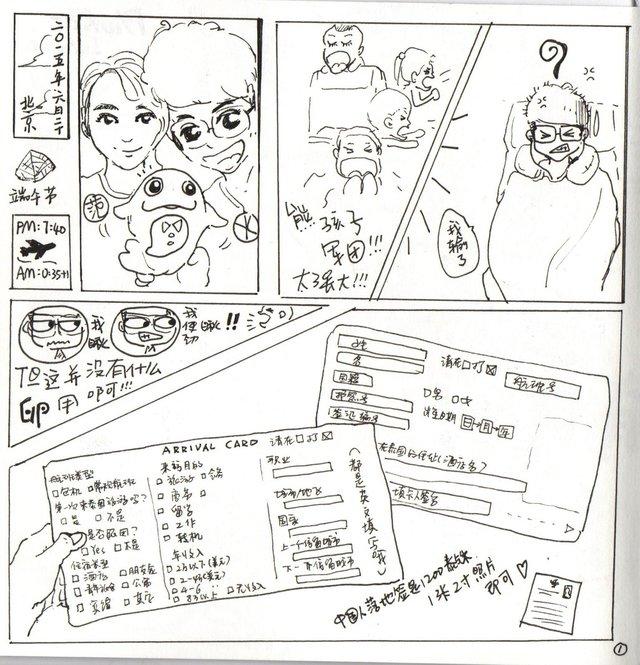 二〇一五年六月二十
北京
端午节
PM:7:40
AM:0:35+1
范
熊孩子
军团!!!
太强大!!!
我输了
?
我瞅
我使劲瞅!!
但这并没有什么
卵用啊!!!
姓
名
国籍
护照号
签证编号
请在□打☒
航班号
□男 □女
出生日期 日→月→年
在泰国的住址(酒店名)?
填卡人签名
ARRIVAL CARD
请在□打☒
航班类型
□包机 □常规航班
第一次来泰国旅游吗?
□是 □不是
是否跟团?
□Yes □不是
住宿类型
□酒店 □朋友家
□青旅 □公寓
□宾馆 □其它
来泰目的
□旅游 □会务
□商务 □
□留学
□工作
□转机
年收入
□2万以下(美元)
□2-4万(美元)
□4-6
□8万以上 □无收入
职业
城市/地区
国家
上一个停留城市
下一个停留城市
(都是英文填写哦)
中国人落地签是1200泰铢
1张2寸照片
即可♡
①